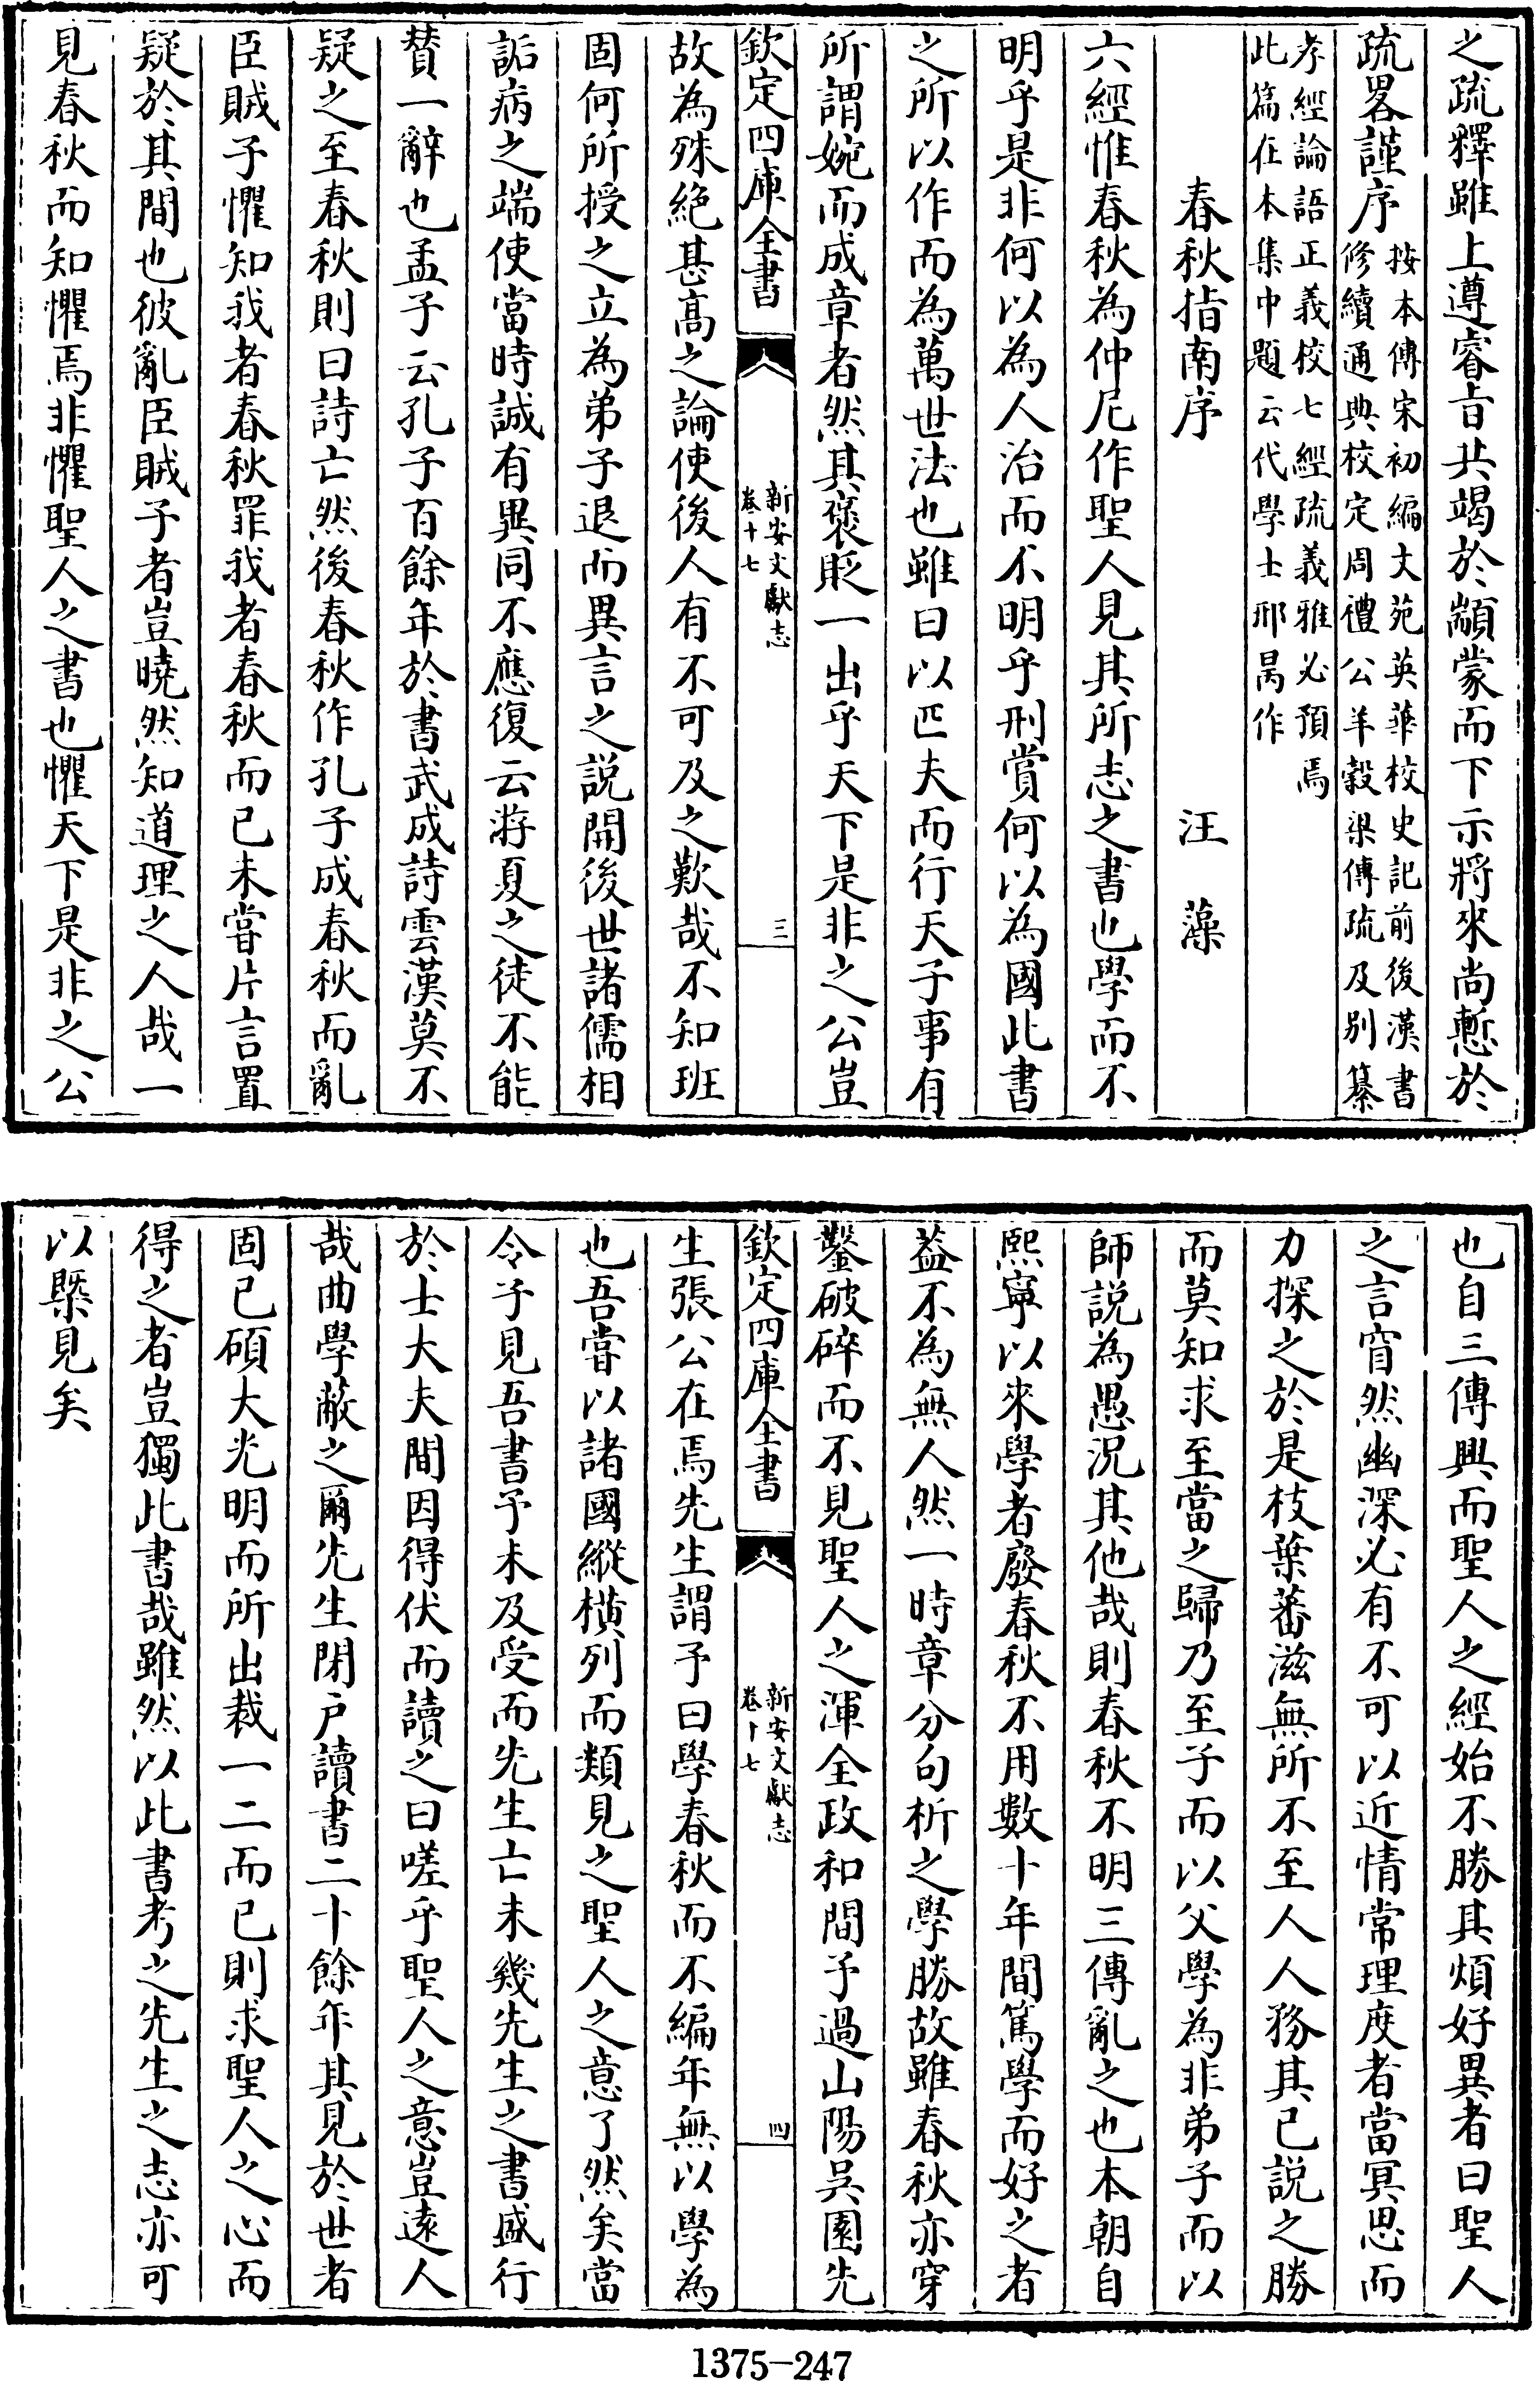 之疏釋雖上遵睿旨共竭於顓蒙而下示將來尚慙於
疏畧謹序按本傳宋初編文苑英華校史記前後漢書
修續通典校定周禮公羊穀梁傳疏及别纂
孝經論語正義校七經疏義雅必預焉
此篇在本集中題云代學士邢昺作
春秋指南序 汪藻
六經惟春秋為仲尼作聖人見其所志之書也學而不
明乎是非何以為人治而不明乎刑賞何以為國此書
之所以作而為萬世法也雖曰以匹夫而行天子事有
所謂婉而成章者然其褒貶一出乎天下是非之公豈
欽定四庫全書
新安文獻志
卷十七
三
故為殊絶甚髙之論使後人有不可及之歎哉不知班
固何所授之立為弟子退而異言之說開後世諸儒相
詬病之端使當時誠有異同不應復云游夏之徒不能
賛一辭也孟子云孔子百餘年於書武成詩雲漢莫不
疑之至春秋則曰詩亡然後春秋作孔子成春秋而亂
臣賊子懼知我者春秋罪我者春秋而已未甞片言置
疑於其間也彼亂臣賊子者豈曉然知道理之人哉一
見春秋而知懼焉非懼聖人之書也懼天下是非之公
也自三傳興而聖人之經始不勝其煩好異者曰聖人
之言窅然幽深必有不可以近情常理度者當冥思而
力探之於是枝葉蕃滋無所不至人人務其已說之勝
而莫知求至當之歸乃至子而以父學為非弟子而以
師說為愚況其他哉則春秋不明三傳亂之也本朝自
熙寧以來學者廢春秋不用數十年間篤學而好之者
葢不為無人然一時章分句析之學勝故雖春秋亦穿
鑿破碎而不見聖人之渾全政和間予過山陽吳園先
欽定四庫全書
新安文獻志
卷十七
四
生張公在焉先生謂予曰學春秋而不編年無以學為
也吾甞以諸國縱横列而類見之聖人之意了然矣當
令子見吾書予未及受而先生亡未幾先生之書盛行
於士大夫間因得伏而讀之曰嗟乎聖人之意豈逺人
哉曲學蔽之爾先生閉户讀書二十餘年其見於世者
固已碩大光明而所出裁一二而已則求聖人之心而
得之者豈獨此書哉雖然以此書考之先生之志亦可
以槩見矣
1375-247